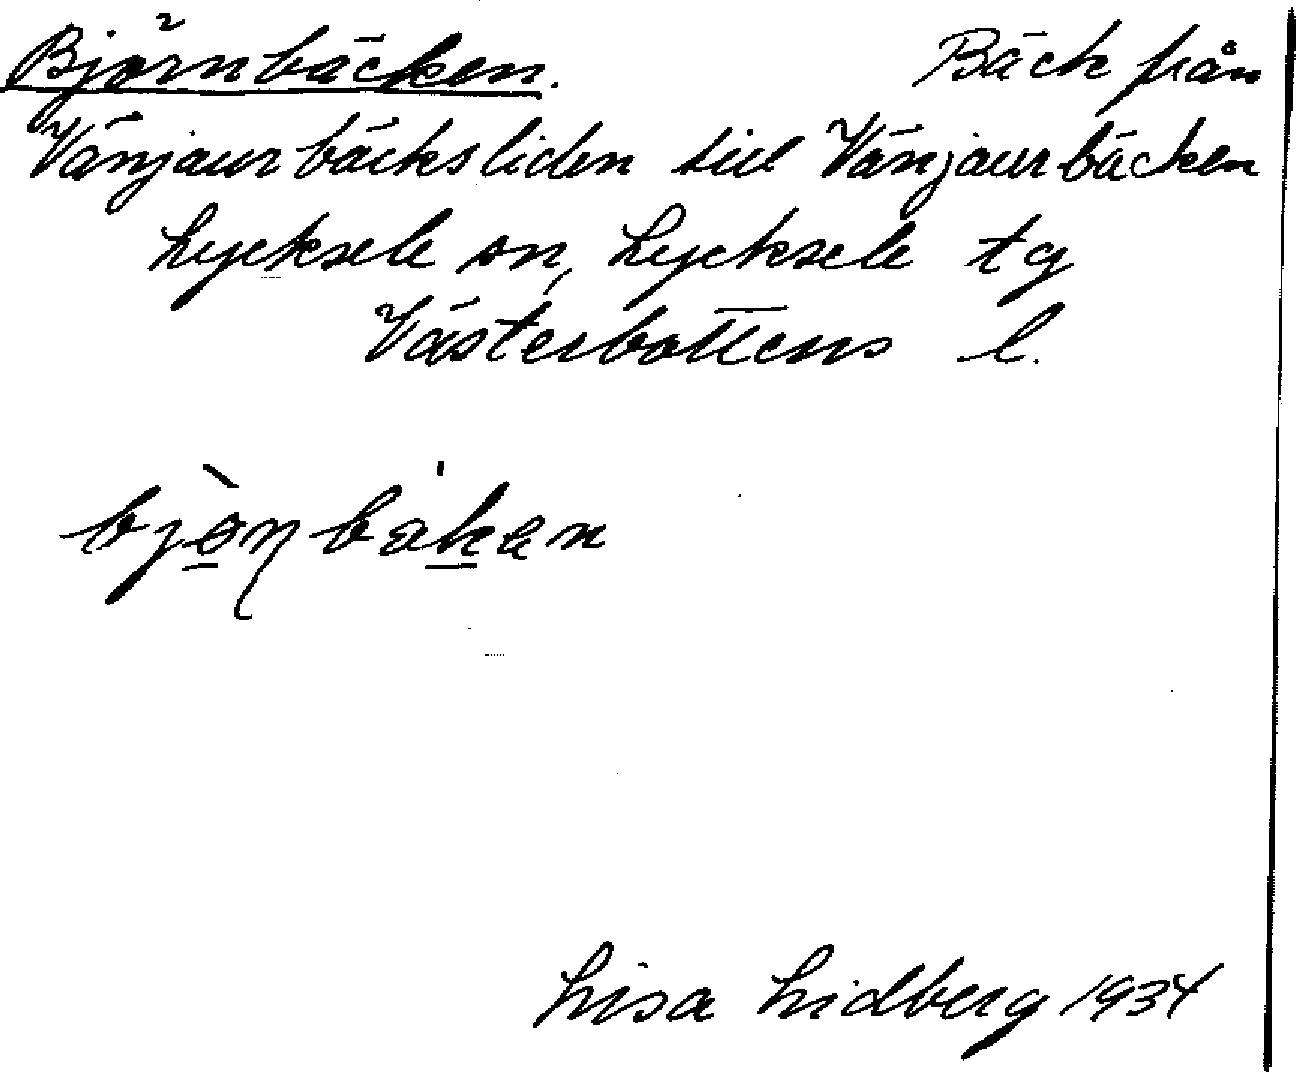 Björnbäcken. Bäck från
Vänjaurbäcksliden till Vänjaurbäcken
Lycksele sn, Lycksele tg
Västerbottens l.
Lisa Lidberg 1934